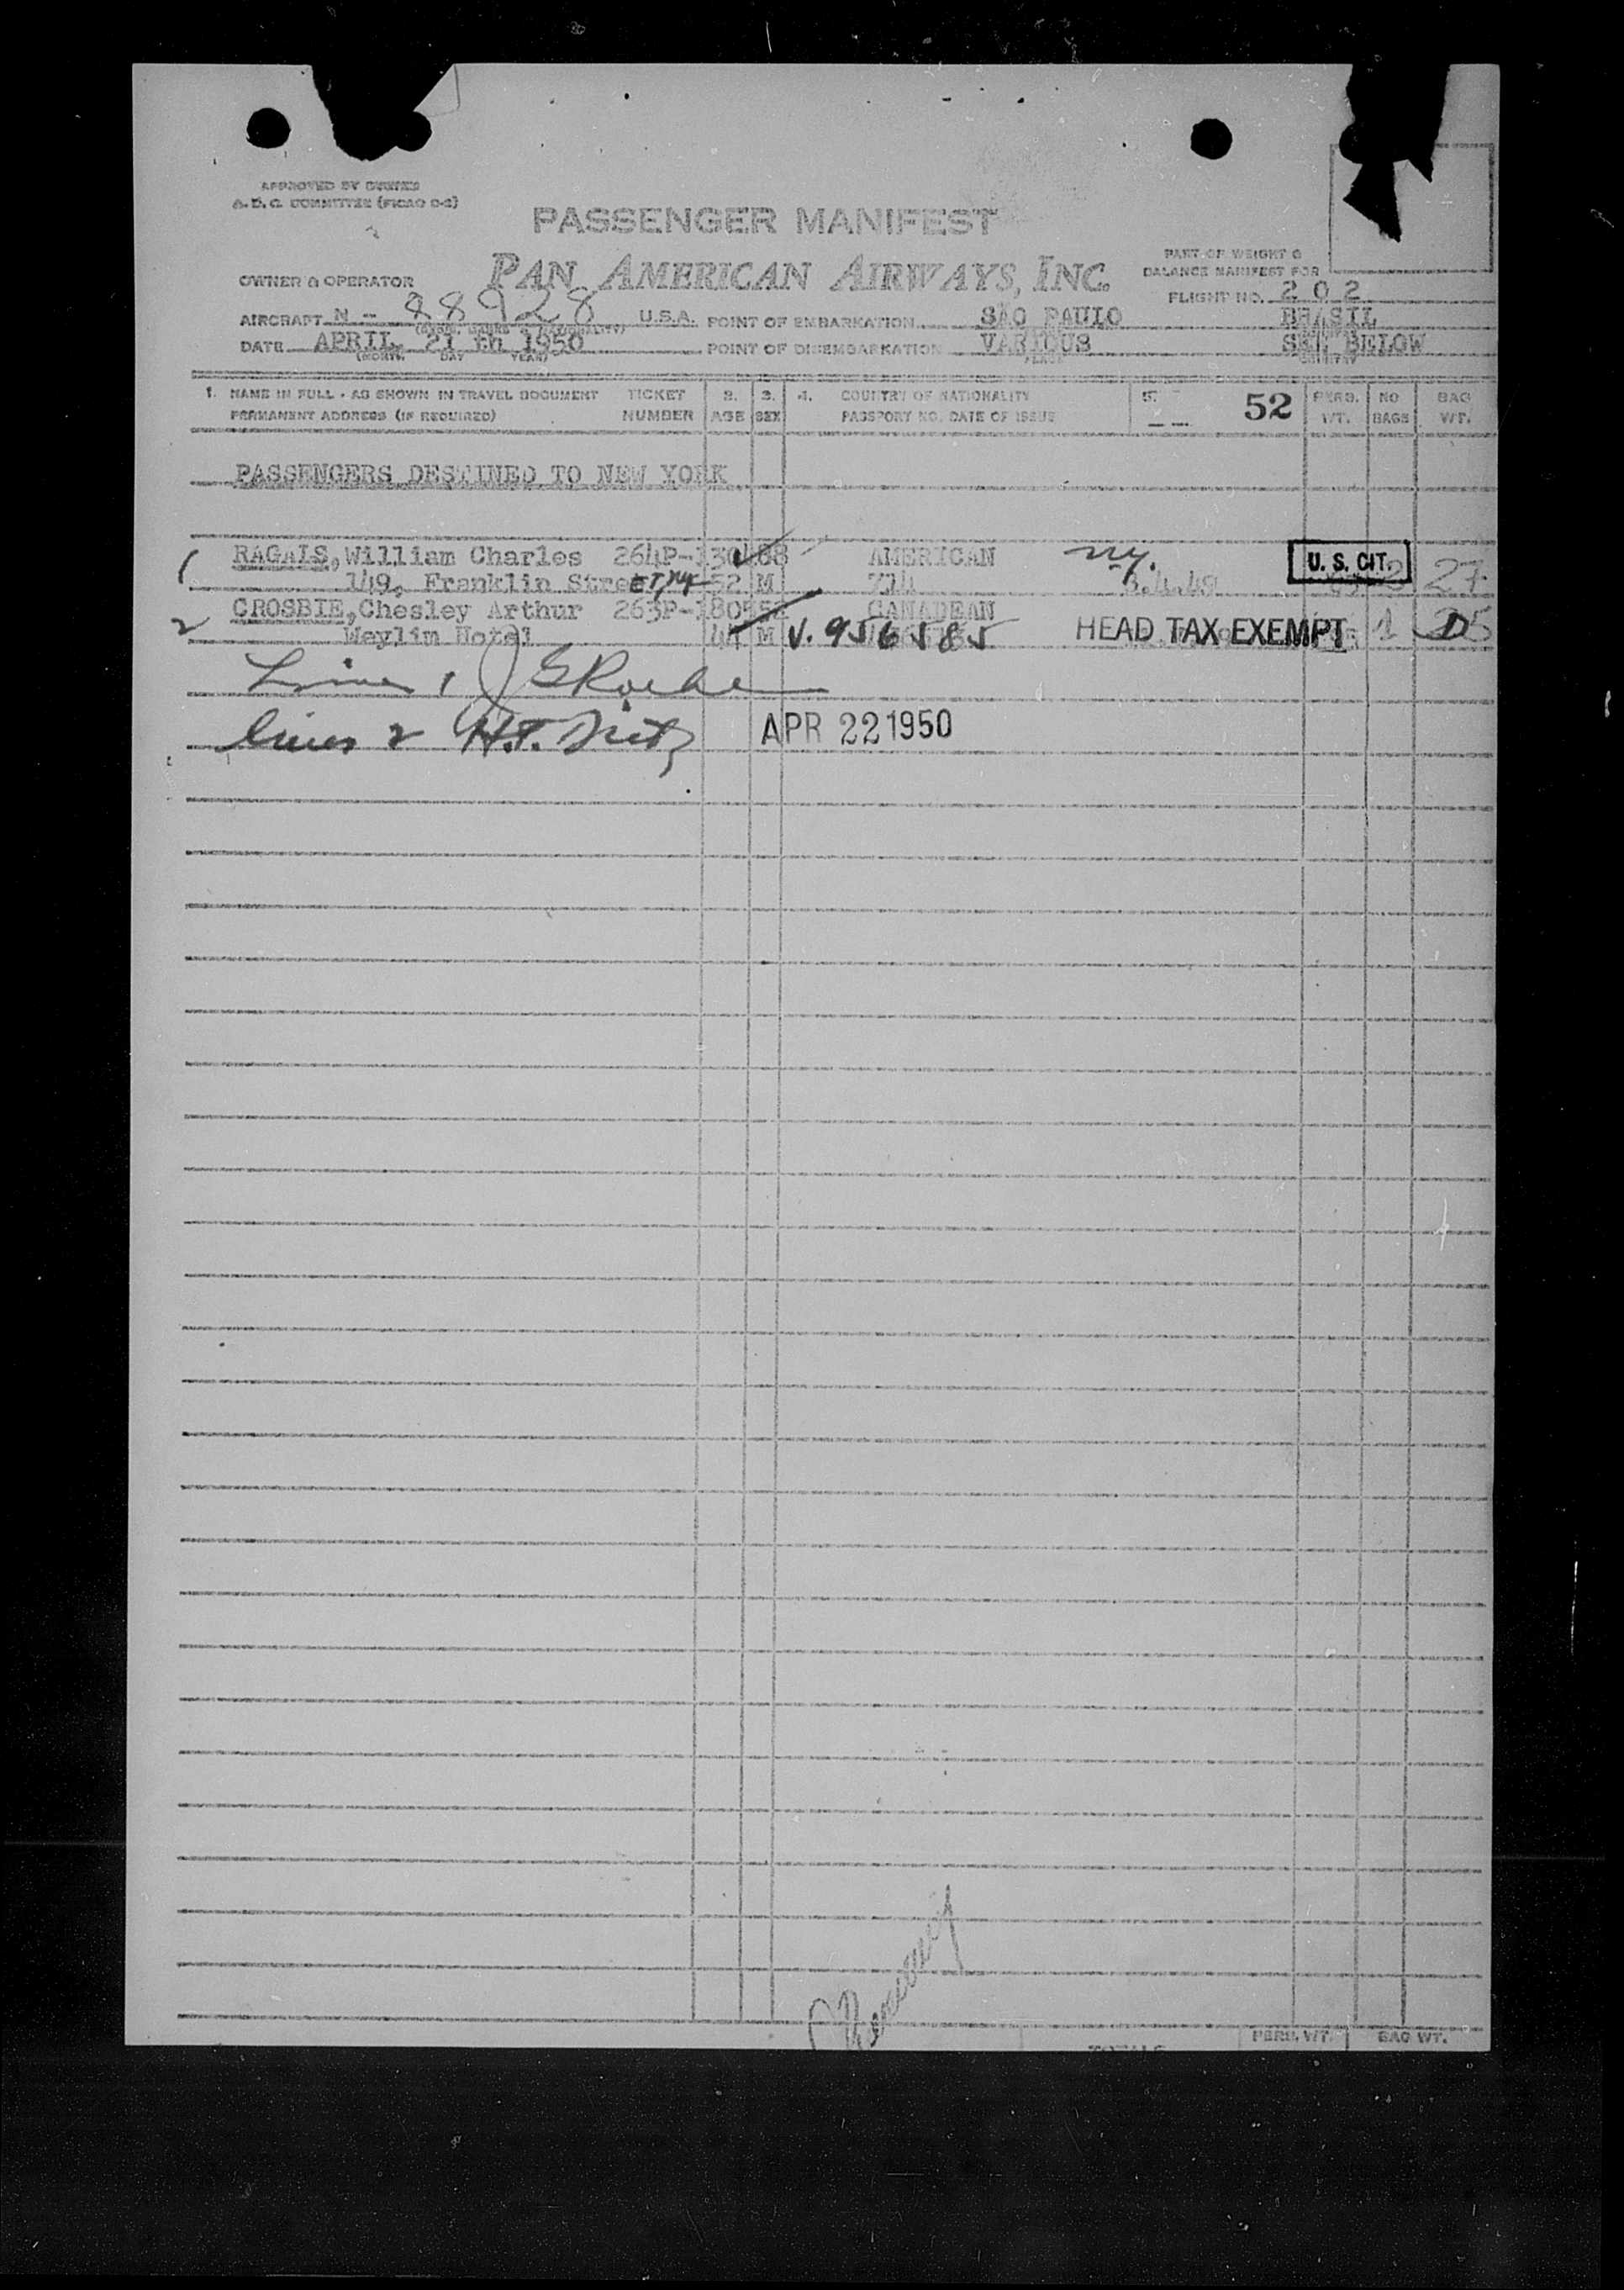 APPROVED BY
COMMITTEE
PASSENGER MANIFEST
PAN AMERICAN AIRWAYS, INC.
OWNER & OPERATOR
PART OF WEIGHT &
BALANCE MANIFEST FOR
FLIGHT NO. 202
AIRCRAFT N - 88928 U.S.A. POINT OF EMBARKATION SÃO PAULO BRASIL
DATE APRIL 21 th 1950 POINT OF DISEMBARKATION VARIOUS SEE BELOW
(MONTH) DAY YEAR)
1. NAME IN FULL - AS SHOWN IN TRAVEL DOCUMENT TICKET 2. 3. 4. COUNTRY OF NATIONALITY 52 PERS. NO BAG
PERMANENT ADDRESS (IF REQUIRED) NUMBER AGE SEX PASSPORT NO. DATE OF ISSUE WT. BAGS WT.
PASSENGERS DESTINED TO NEW YORK
1 RAGALS, William Charles 264P- AMERICAN NY. U. S. CIT.
149, Franklin Street, NY 52 M 2 27
2 CROSBIE, Chesley Arthur 263P- CANADEAN
Weylin Hotel 44 M V. 956585 HEAD TAX EXEMPT 1
Lines 1
Lines 2 H.T. APR 22 1950
PERS. WT. BAG WT.
TOTALS